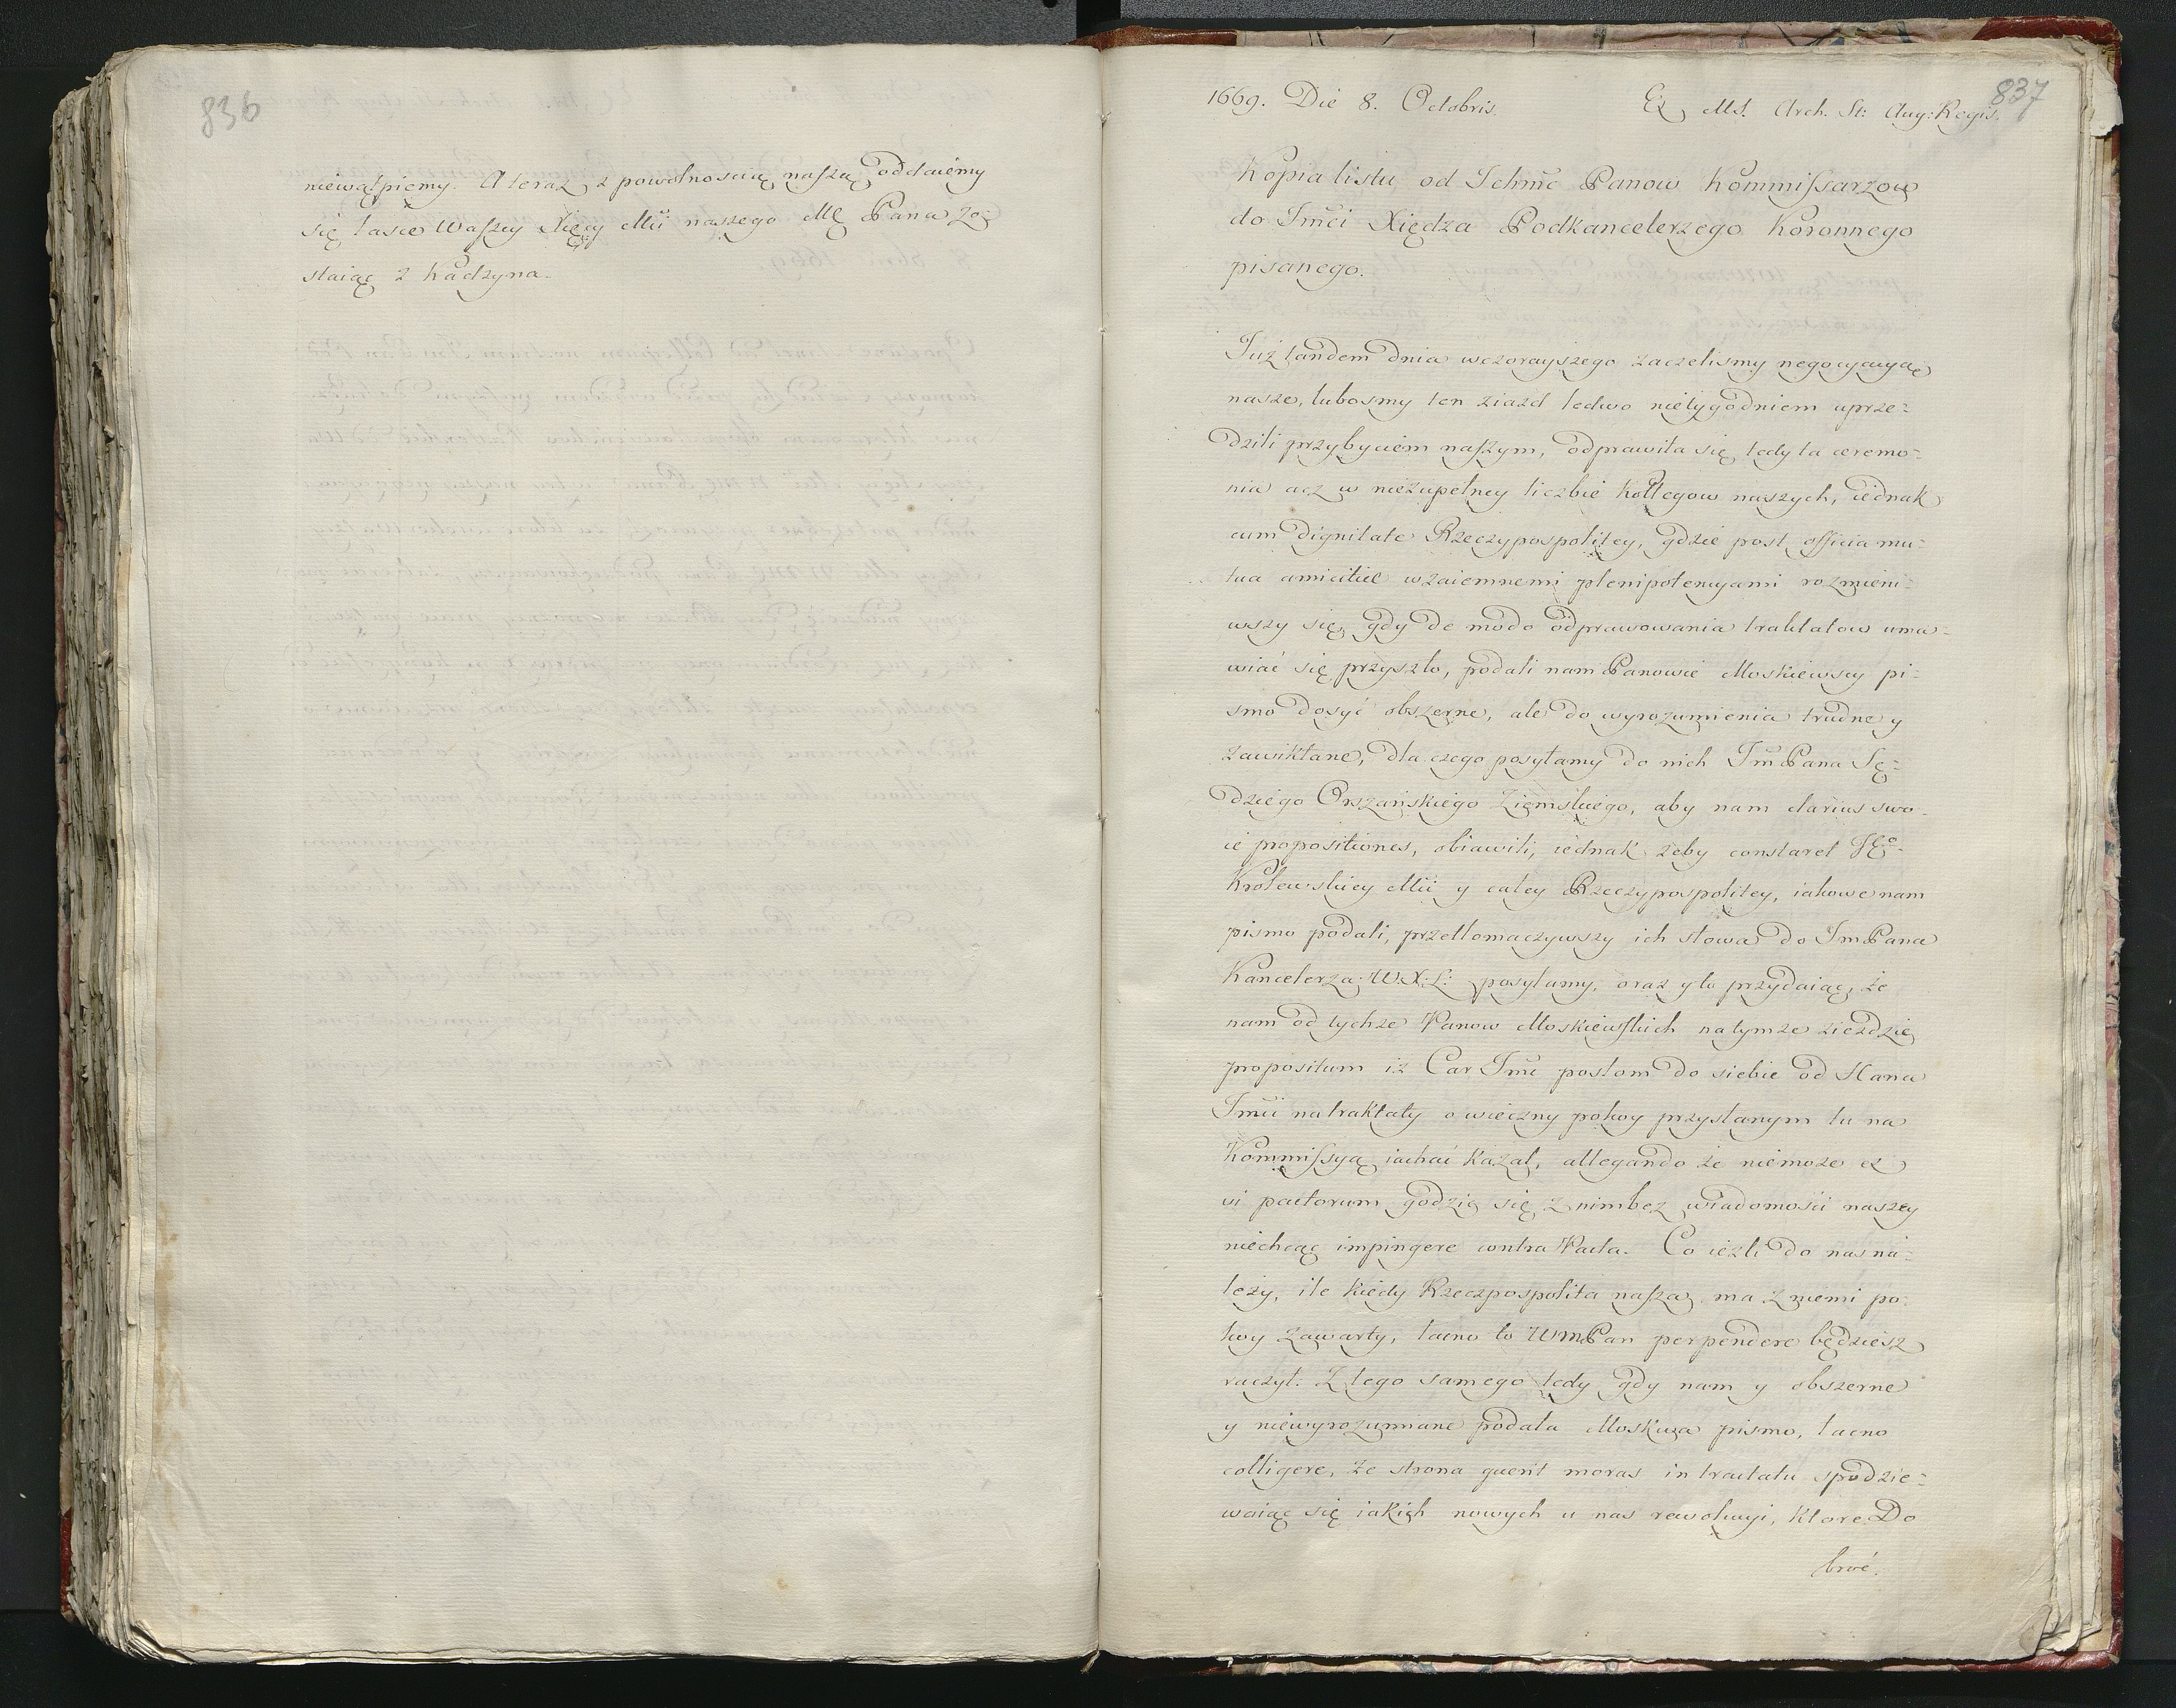 836
niewątpiemy. A teraz z powolnoscią naszą oddaiemy
się łasce Waszey Xięcy Mci naszego Mę Pana zo=
staiąc z Kadzyna.
837
1669. Die 8. Octobris. Ex Ms. Arch. St: Aug: Regis.
Kopia listu od Ichmc Panow Kommissarzow
do Jmci Xiędza Podkanclerzego Koronnego
pisanego.
Już tandem dnia wczorayszego zaczelismy negocyacyae
nasze, lubosmy ten ziazd ledwo nietygodniem uprze=
dzili przybyciem naszym, odprawiła się tedy ta ceremo=
nia acz w niezupełney liczbie Kollegow naszych, iednak
cum dignitate Rzeczypospolitey, gdzie post officia mu=
tua amicitiae wzaiemnemi plenipotencyami rozmieni=
wszy się, gdy de modo odprawowania traktatow uma=
wiać się przyszło, podali nam Panowie Moskiewscy pi=
smo dosyć obszerne, ale do wyrozumienia trudne y
zawikłane, dla czego posyłamy do nich Jm Pana Sę=
dziego Orszańskiego Ziemskiego, aby nam clarius swo=
ie propositiones, obiawili, iednak żeby constaret JEo
Krolewskiey Mci y całey Rzeczypospolitey, iakowe nam
pismo podali, przetłomaczywszy ich słowa do Jm Pana
Kanclerza W.X.L: posyłamy, oraz y to przydaiąc, że
nam od tychże Panow Moskiewskich na tymże zieździe
propositum iż Car Jmc posłom do siebie od Hana
Jmci na traktaty o wieczny pokoy przysłanym tu na
Kommissyą iachać kazał, allegando że niemoże ex
vi pactorum godzic się z nim bez wiadomości naszey
niechcąc impingere contra Pacta. Co ieżli do nas na=
leży, ile kiedy Rzeczpospolita nasza ma z niemi po=
koy zawarty, łacno to WmPan perpendere będziesz
raczył. Z tego samego tedy gdy nam y obszerne
y niewyrozumiane podała Moskwa pismo, łacno
colligere, że strona quaerit moras in tractatu spodzie=
waiąc się iakich nowych u nas rewolucyi, ktore Do
broć.